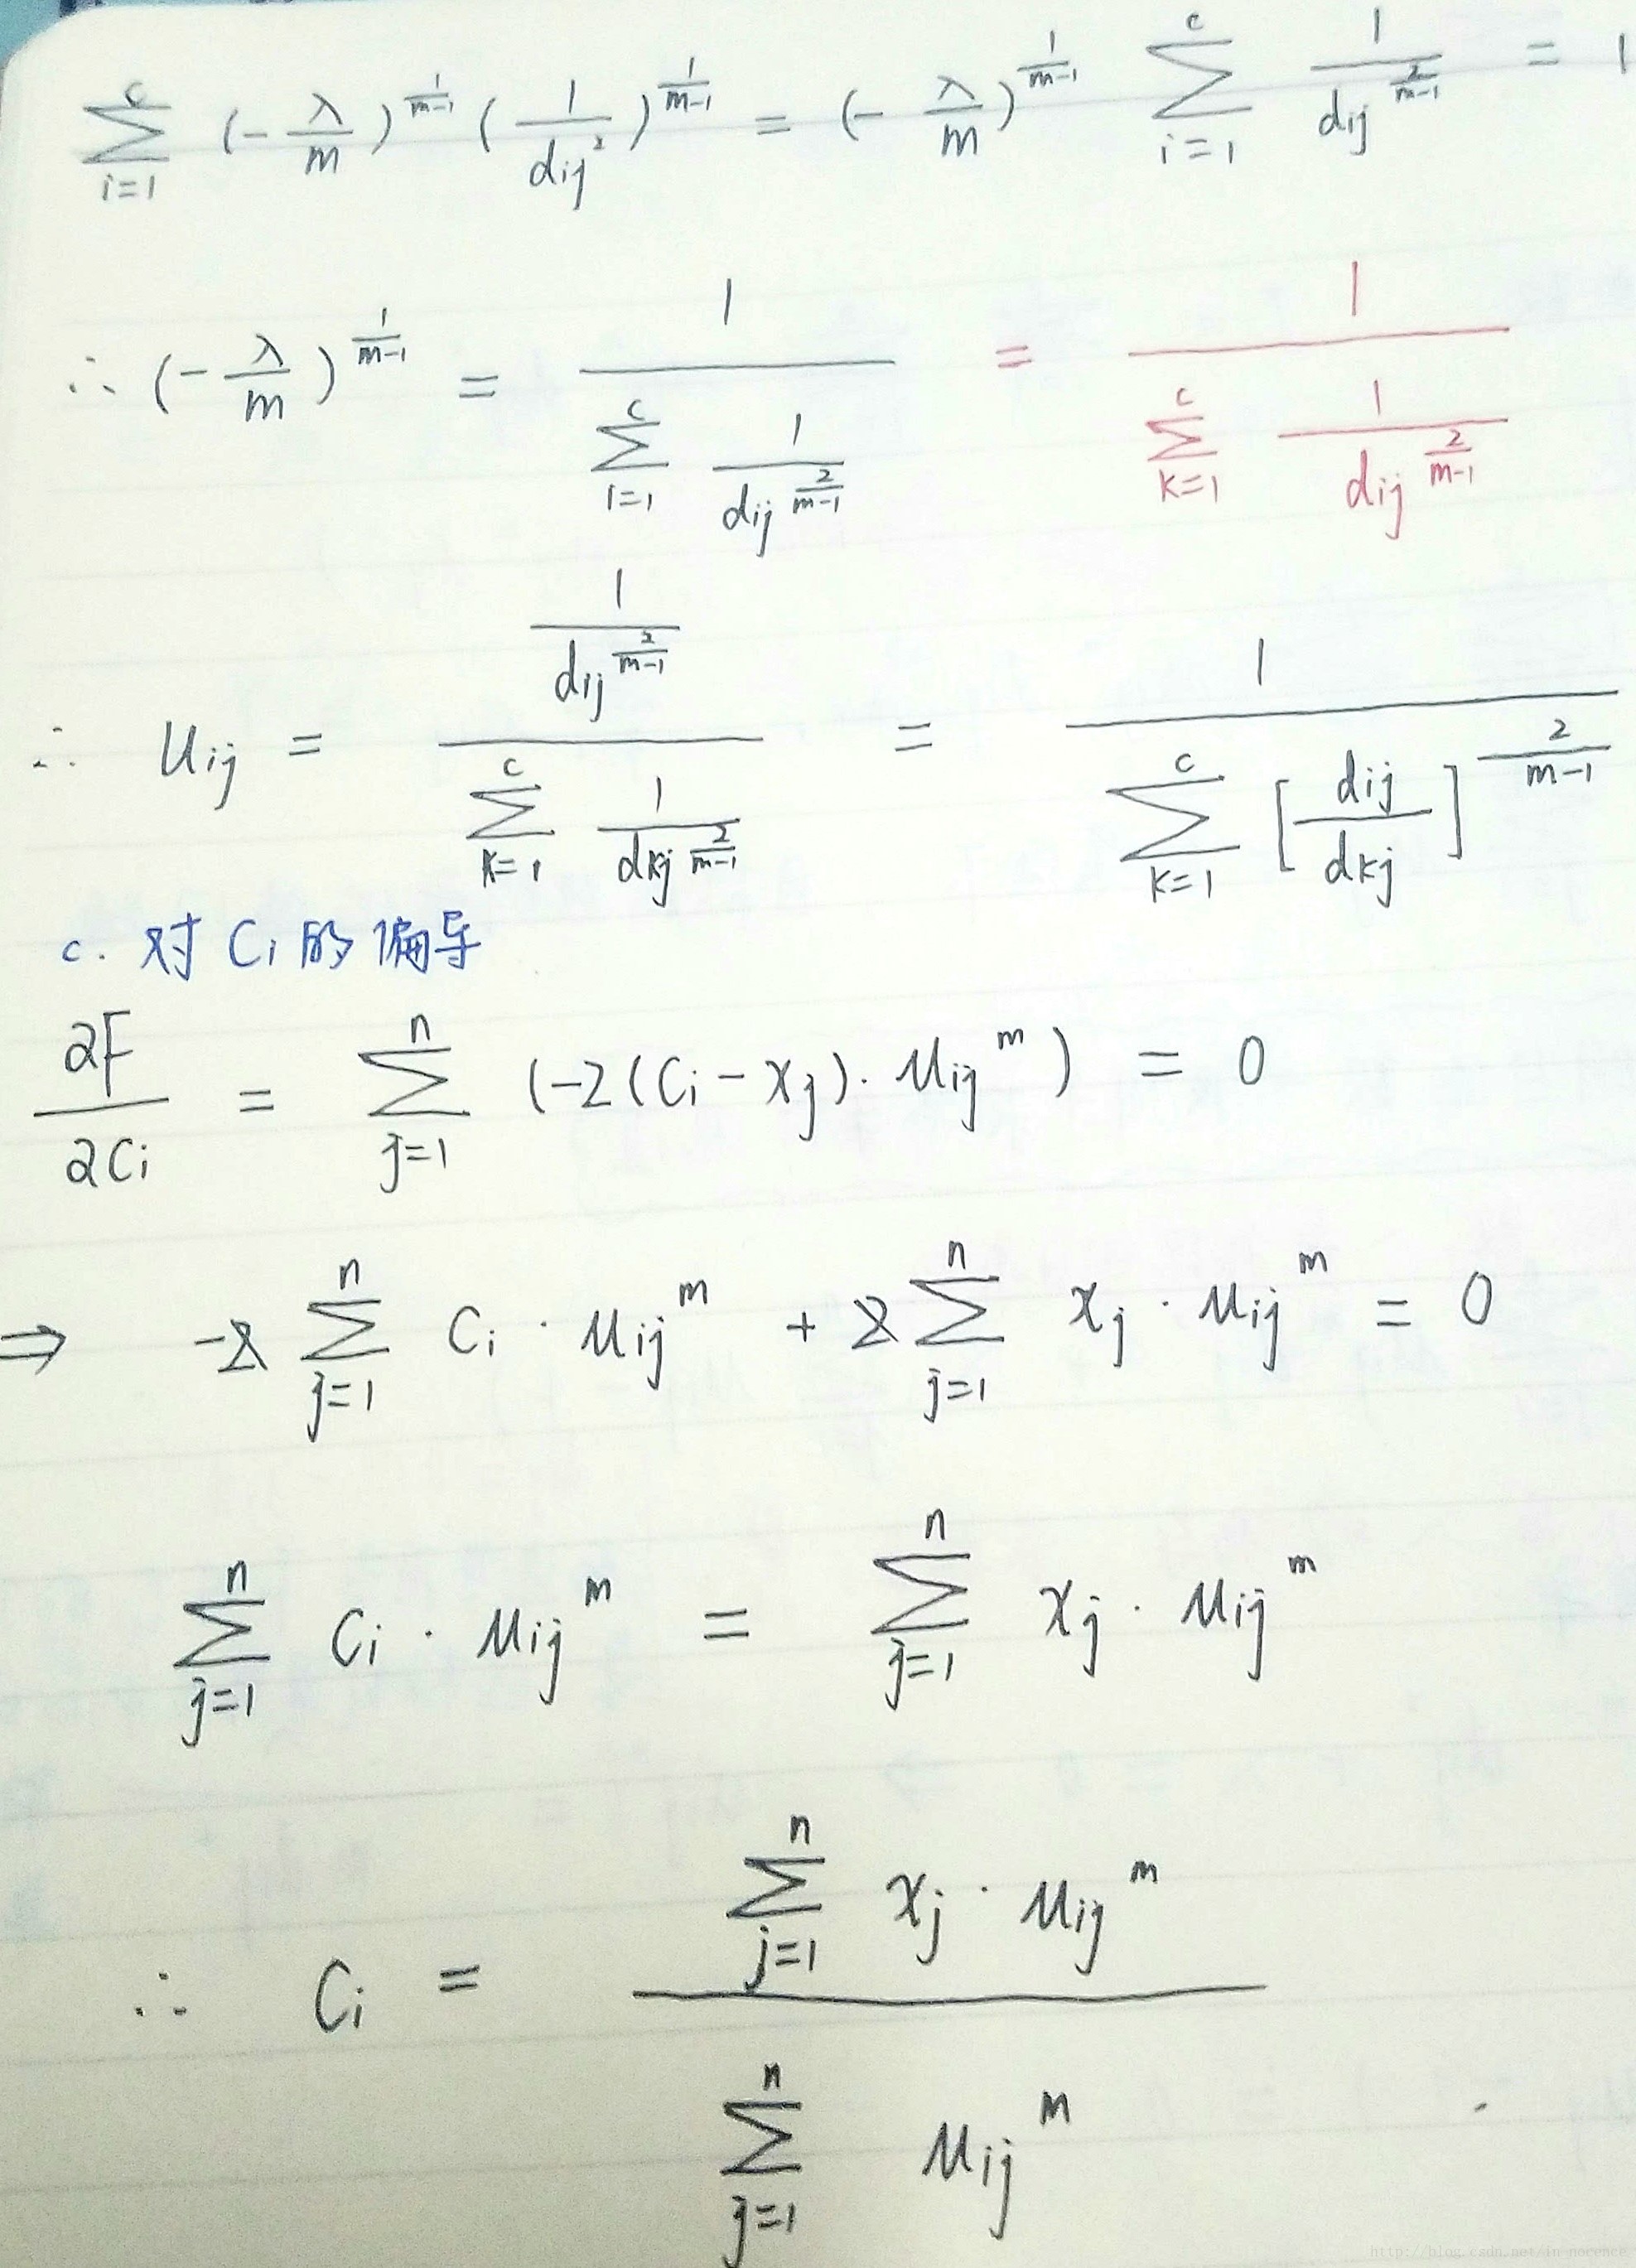 $\sum_{i=1}^{c} (-\frac{\lambda}{m})^{\frac{1}{m-1}} (\frac{1}{d_{ij}^2})^{\frac{1}{m-1}} = (-\frac{\lambda}{m})^{\frac{1}{m-1}} \sum_{i=1}^{c} \frac{1}{d_{ij}^{\frac{2}{m-1}}} = 1$
$\therefore (-\frac{\lambda}{m})^{\frac{1}{m-1}} = \frac{1}{\sum_{i=1}^{c} \frac{1}{d_{ij}^{\frac{2}{m-1}}}} = \frac{1}{\sum_{k=1}^{c} \frac{1}{d_{ij}^{\frac{2}{m-1}}}}$
$\therefore u_{ij} = \frac{\frac{1}{d_{ij}^{\frac{2}{m-1}}}}{\sum_{k=1}^{c} \frac{1}{d_{kj}^{\frac{2}{m-1}}}} = \frac{1}{\sum_{k=1}^{c} [\frac{d_{ij}}{d_{kj}}]^{\frac{2}{m-1}}}$
c. 对 $C_i$ 的偏导
$\frac{\partial F}{\partial C_i} = \sum_{j=1}^{n} (-2(C_i - x_j) \cdot u_{ij}^m) = 0$
$\Rightarrow -2 \sum_{j=1}^{n} C_i \cdot u_{ij}^m + 2 \sum_{j=1}^{n} x_j \cdot u_{ij}^m = 0$
$\sum_{j=1}^{n} C_i \cdot u_{ij}^m = \sum_{j=1}^{n} x_j \cdot u_{ij}^m$
$\therefore C_i = \frac{\sum_{j=1}^{n} x_j \cdot u_{ij}^m}{\sum_{j=1}^{n} u_{ij}^m}$